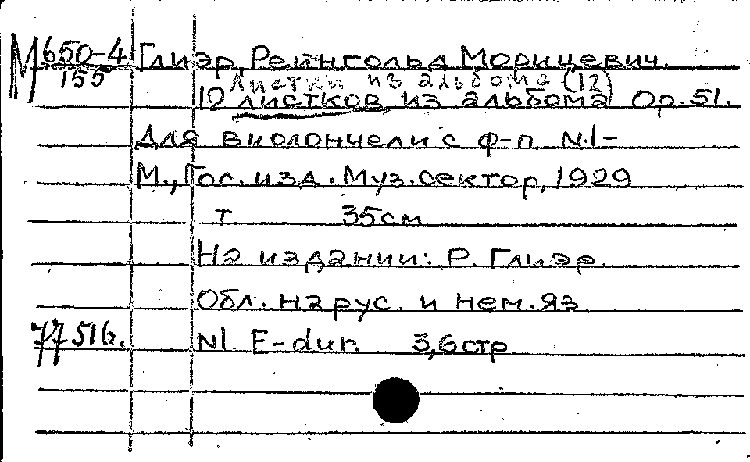 М 650-4 Глиэр, Рейнгольд Морицевич.
155 Листки из альбома (12)
12 листков из альбома Op. 51.
Для виолончели с ф-п. N.1-
М., Гос. изд. Муз. сектор, 1929
т 35см
На издании: Р. Глиэр.
Обл. на рус. и нем. яз
77516г. N1 E-dur. 3,6 стр